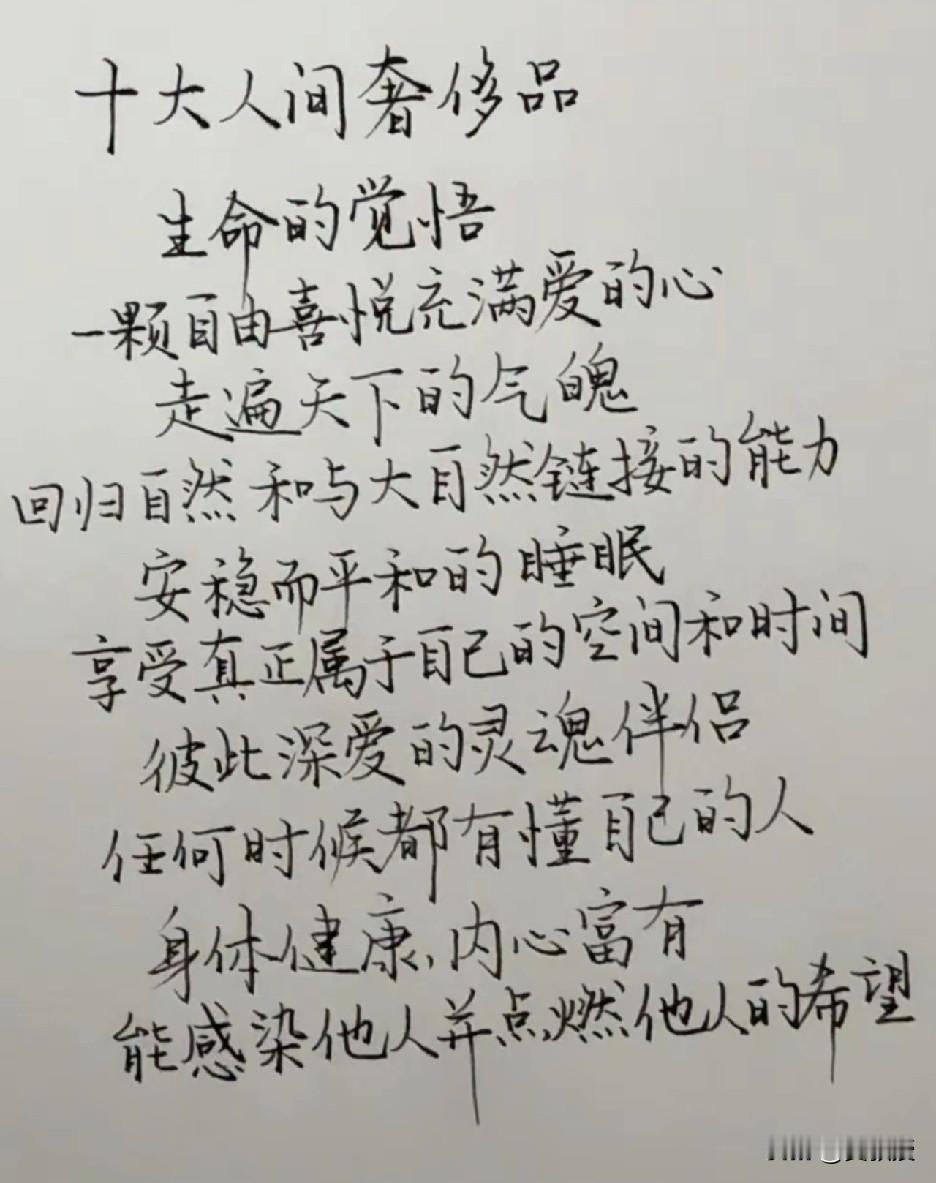 十大人间奢侈品
生命的觉悟
一颗自由喜悦充满爱的心
走遍天下的气魄
回归自然和与大自然链接的能力
安稳而平和的睡眠
享受真正属于自己的空间和时间
彼此深爱的灵魂伴侣
任何时候都有懂自己的人
身体健康、内心富有
能感染他人并点燃他人的希望